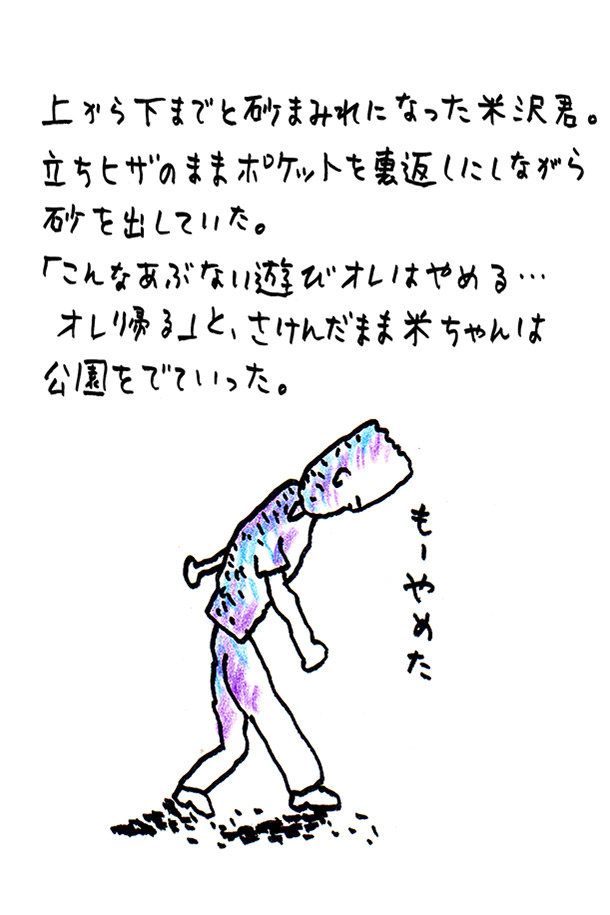 上から下までと砂まみれになった米沢君。
立ちヒザのままポケットを裏返しにしながら
砂を出していた。
「こんなあぶない遊びオレはやめる…
オレ帰る」と、さけんだまま米ちゃんは
公園をでていった。
もーやめた